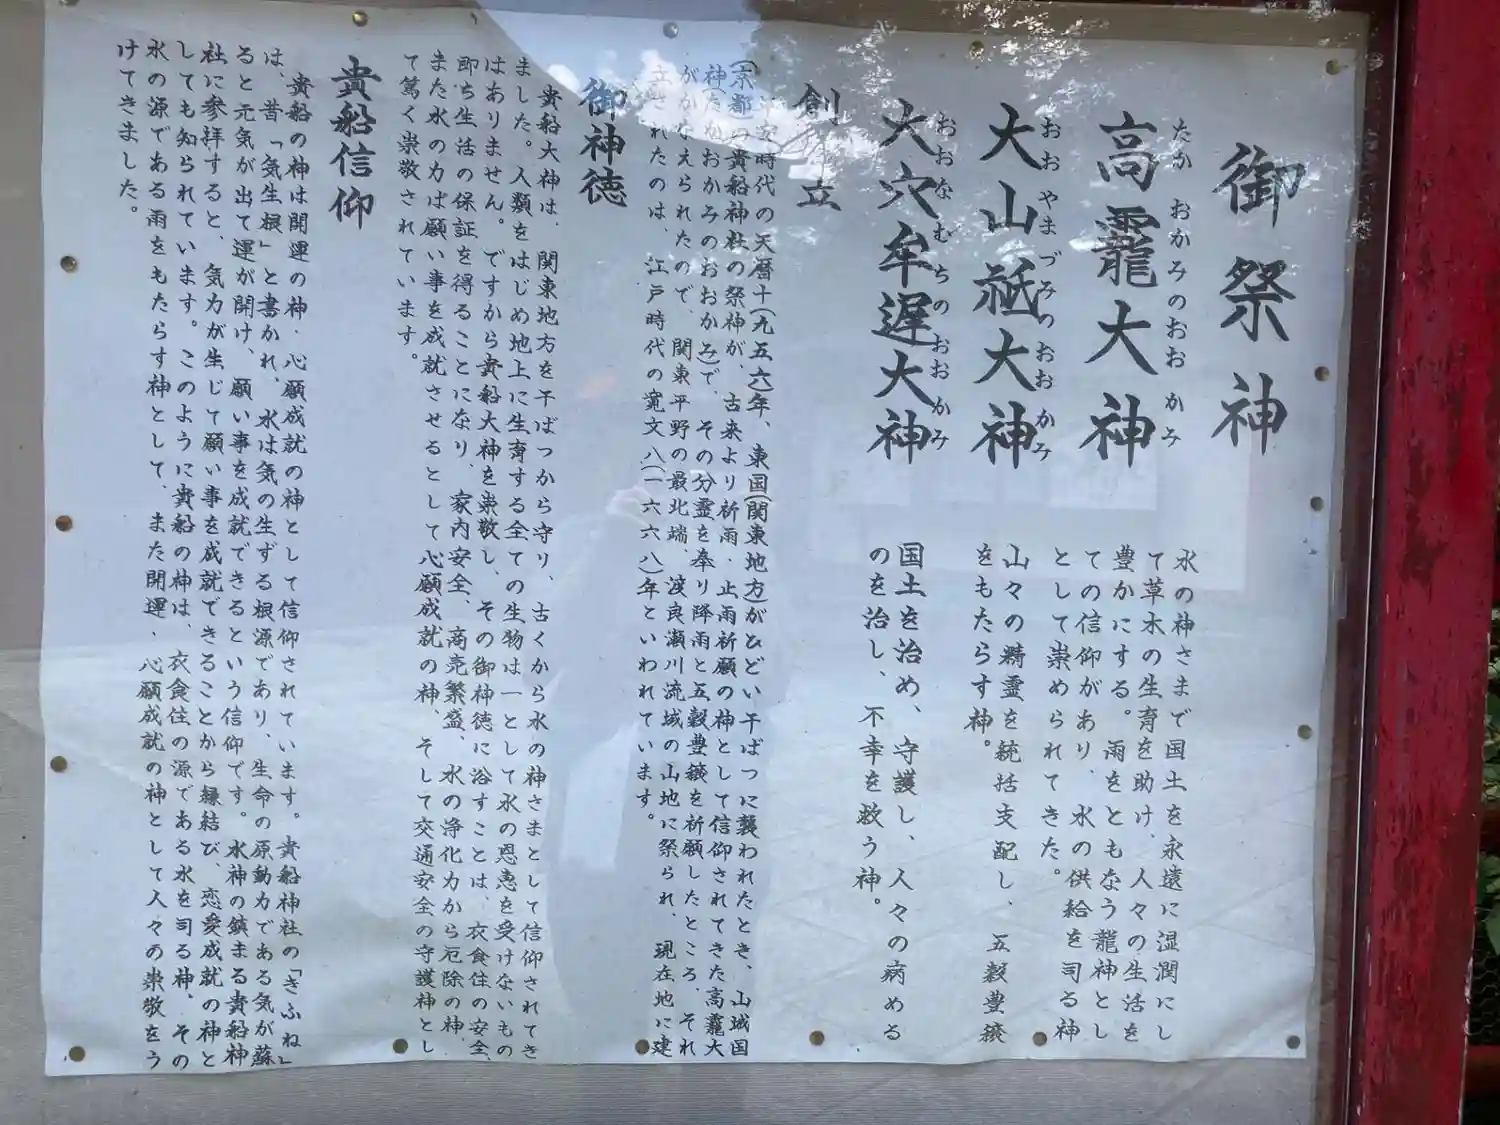 御祭神
高龗大神
たか おかみのおおかみ
水の神さまで国土を永遠に湿潤にし
て草木の生育を助け、人々の生活を
豊かにする。雨をともなう龍神とし
ての信仰があり、水の供給を司る神
として崇められてきた。
大山祗大神
おおやまづみのおおかみ
山々の精霊を統括支配し、五穀豊穣
をもたらす神。
大穴牟遅大神
おおなむちのおおかみ
国土を治め、守護し、人々の病める
のを治し、不幸を救う神。
創立
平安時代の天暦十(九五六)年、東国(関東地方)がひどい干ばつに襲われたとき、山城国
(京都)の貴船神社の祭神が、古来より祈雨・止雨祈願の神として信仰されてきた高龗大
神(たかおかみのおおかみ)で、その分霊を奉り降雨と五穀豊穣を祈願したところ、それ
がかなえられたので、関東平野の最北端、渡良瀬川流域の山地に祭られ、現在地に建
立されたのは、江戸時代の寛文八(一六六八)年といわれています。
御神徳
貴船大神は、関東地方を干ばつから守り、古くから水の神さまとして信仰されてき
ました。人類をはじめ地上に生育する全ての生物は一として水の恩恵を受けないもの
はありません。ですから貴船大神を崇敬し、その御神徳に浴すことは、衣食住の安全、
即ち生活の保証を得ることになり、家内安全、商売繁盛、水の浄化力から厄除の神、
また水の力は願い事を成就させるとして心願成就の神、そして交通安全の守護神とし
て篤く崇敬されています。
貴船信仰
貴船の神は開運の神・心願成就の神として信仰されています。貴船神社の「きふね」
は、昔「気生根」と書かれ、水は気の生ずる根源であり、生命の原動力である気が蘇
ると元気が出て運が開け、願い事を成就できるという信仰です。水神の鎮まる貴船神
社に参拝すると、気力が生じて願い事を成就できることから縁結び、恋愛成就の神と
しても知られています。このように貴船の神は、衣食住の源である水を司る神、その
水の源である雨をもたらす神として、また開運、心願成就の神として人々の崇敬をう
けてきました。